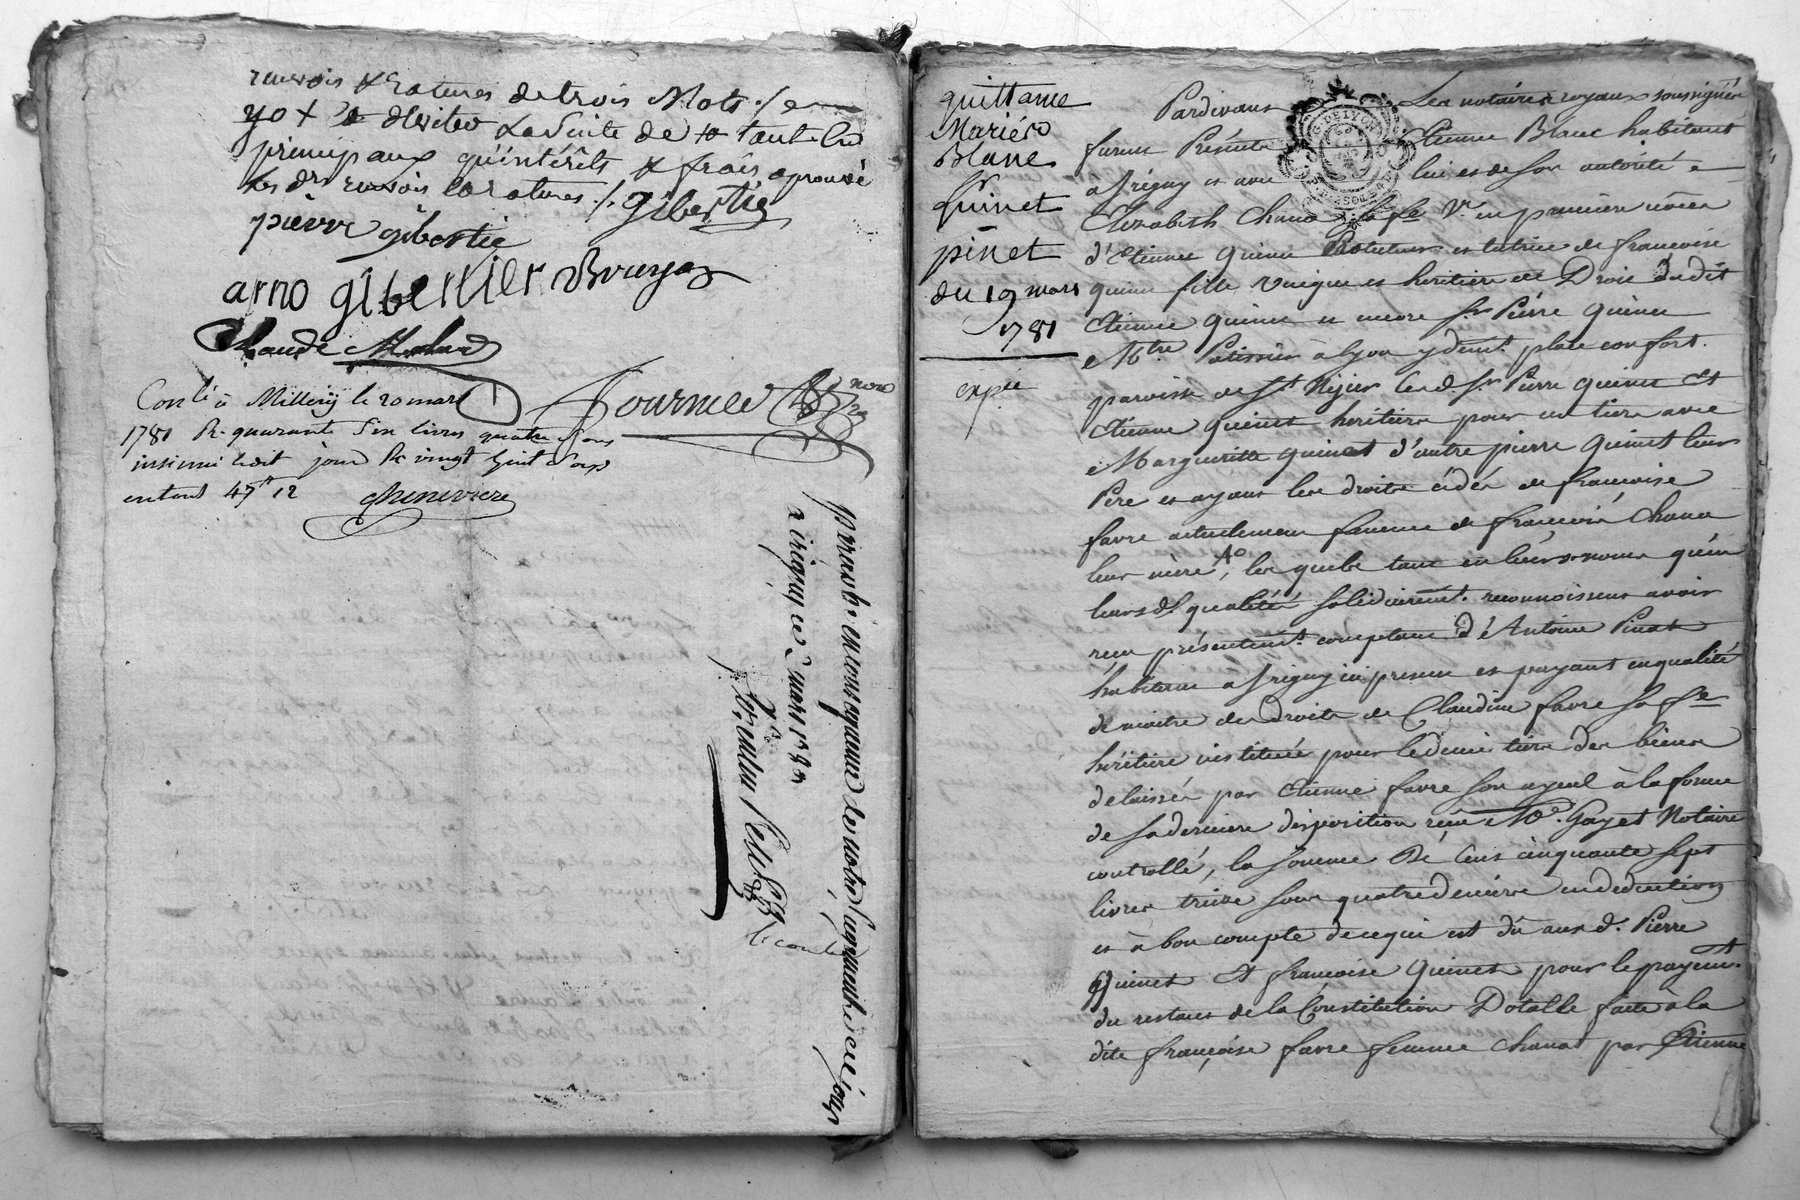 renvois & ratures de trois Mots ./.
principaux qu'intérêts & frais aprouvé
les dts renvois & ratures ./. Gibertie
pierre gibertie
arno giberltier Bruyas
Claude
Fournier
Conlé à Millery le 20 mars
1781 R. quarante six livres quatre sous
insinué ledit jour Rc vingt huit sous
en tout 47 12
Chenevière
paraphé en conséquence de notre
à irigny ce 2 mars 1780
quittance
Mariés
Blanc
Sr
quinet
pinet
du 19 mars
1781
expée
Pardevant Les notaires royaux soussignés
furent Présents Etienne Blanc habitant
à Irigny et avec lui et de son autorité
Elizabeth Chana sa fe Ve en premières nôces
d'Etienne quinet tutrice de francoise
quinet fille unique et héritière de Droit dudit
Etienne quinet et encore Sr Pierre quinet
Mtre Patissier à lyon y demt place confort
paroisse de St Nizier led Sr Pierre quinet et
Etienne quinet héritiers pour un tiers avec
Margueritte quinet d'autre pierre quinet leur
Pere et ayant les droits cédés de francoise
favre actuellement femme de francois Chana
leur mère, lesquels tant en leurs noms qu'en
leurs des qualités solidairemt reconnoissent avoir
reçu présentemt comptant d'Antoine Pinet
habitant à Irigny ici présent et payant en qualité
de maitre des droits de Claudine favre sa fe
héritière instituée pour le demi tiers des biens
delaissés par Etienne favre son ayeul à la forme
de sa derniere disposition reçue Me Gayet Notaire
controllé, la somme De Cent cinquante sept
livres treize sous quatre deniers en deduction
et à bon compte de ce qui est dû aux d. Pierre
Quinet et francoise Quinet pour le payemt
du restant de la Constitution Dotalle faite à la
dite françoise favre femme chanat par Etienne